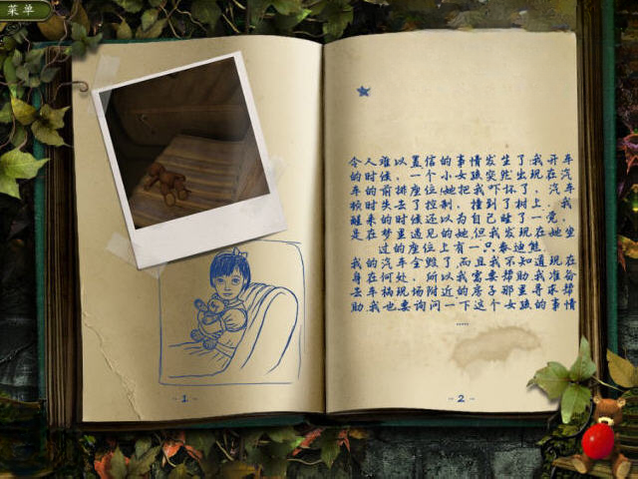 菜单
令人难以置信的事情发生了!我开车
的时候，一个小女孩突然出现在汽
车的前排座位!她把我吓坏了，汽车
顿时失去了控制，撞到了树上。我
醒来的时候还以为自己睡了一觉，
是在梦里遇见的她,但我发现在她坐
过的座位上有一只泰迪熊
我的汽车全毁了而且我不知道现在
身在何处，所以我需要帮助我准备
去车祸现场附近的房子那里寻求帮
助,我也要询问一下这个女孩的事情
.....
- 1 -
- 2 -